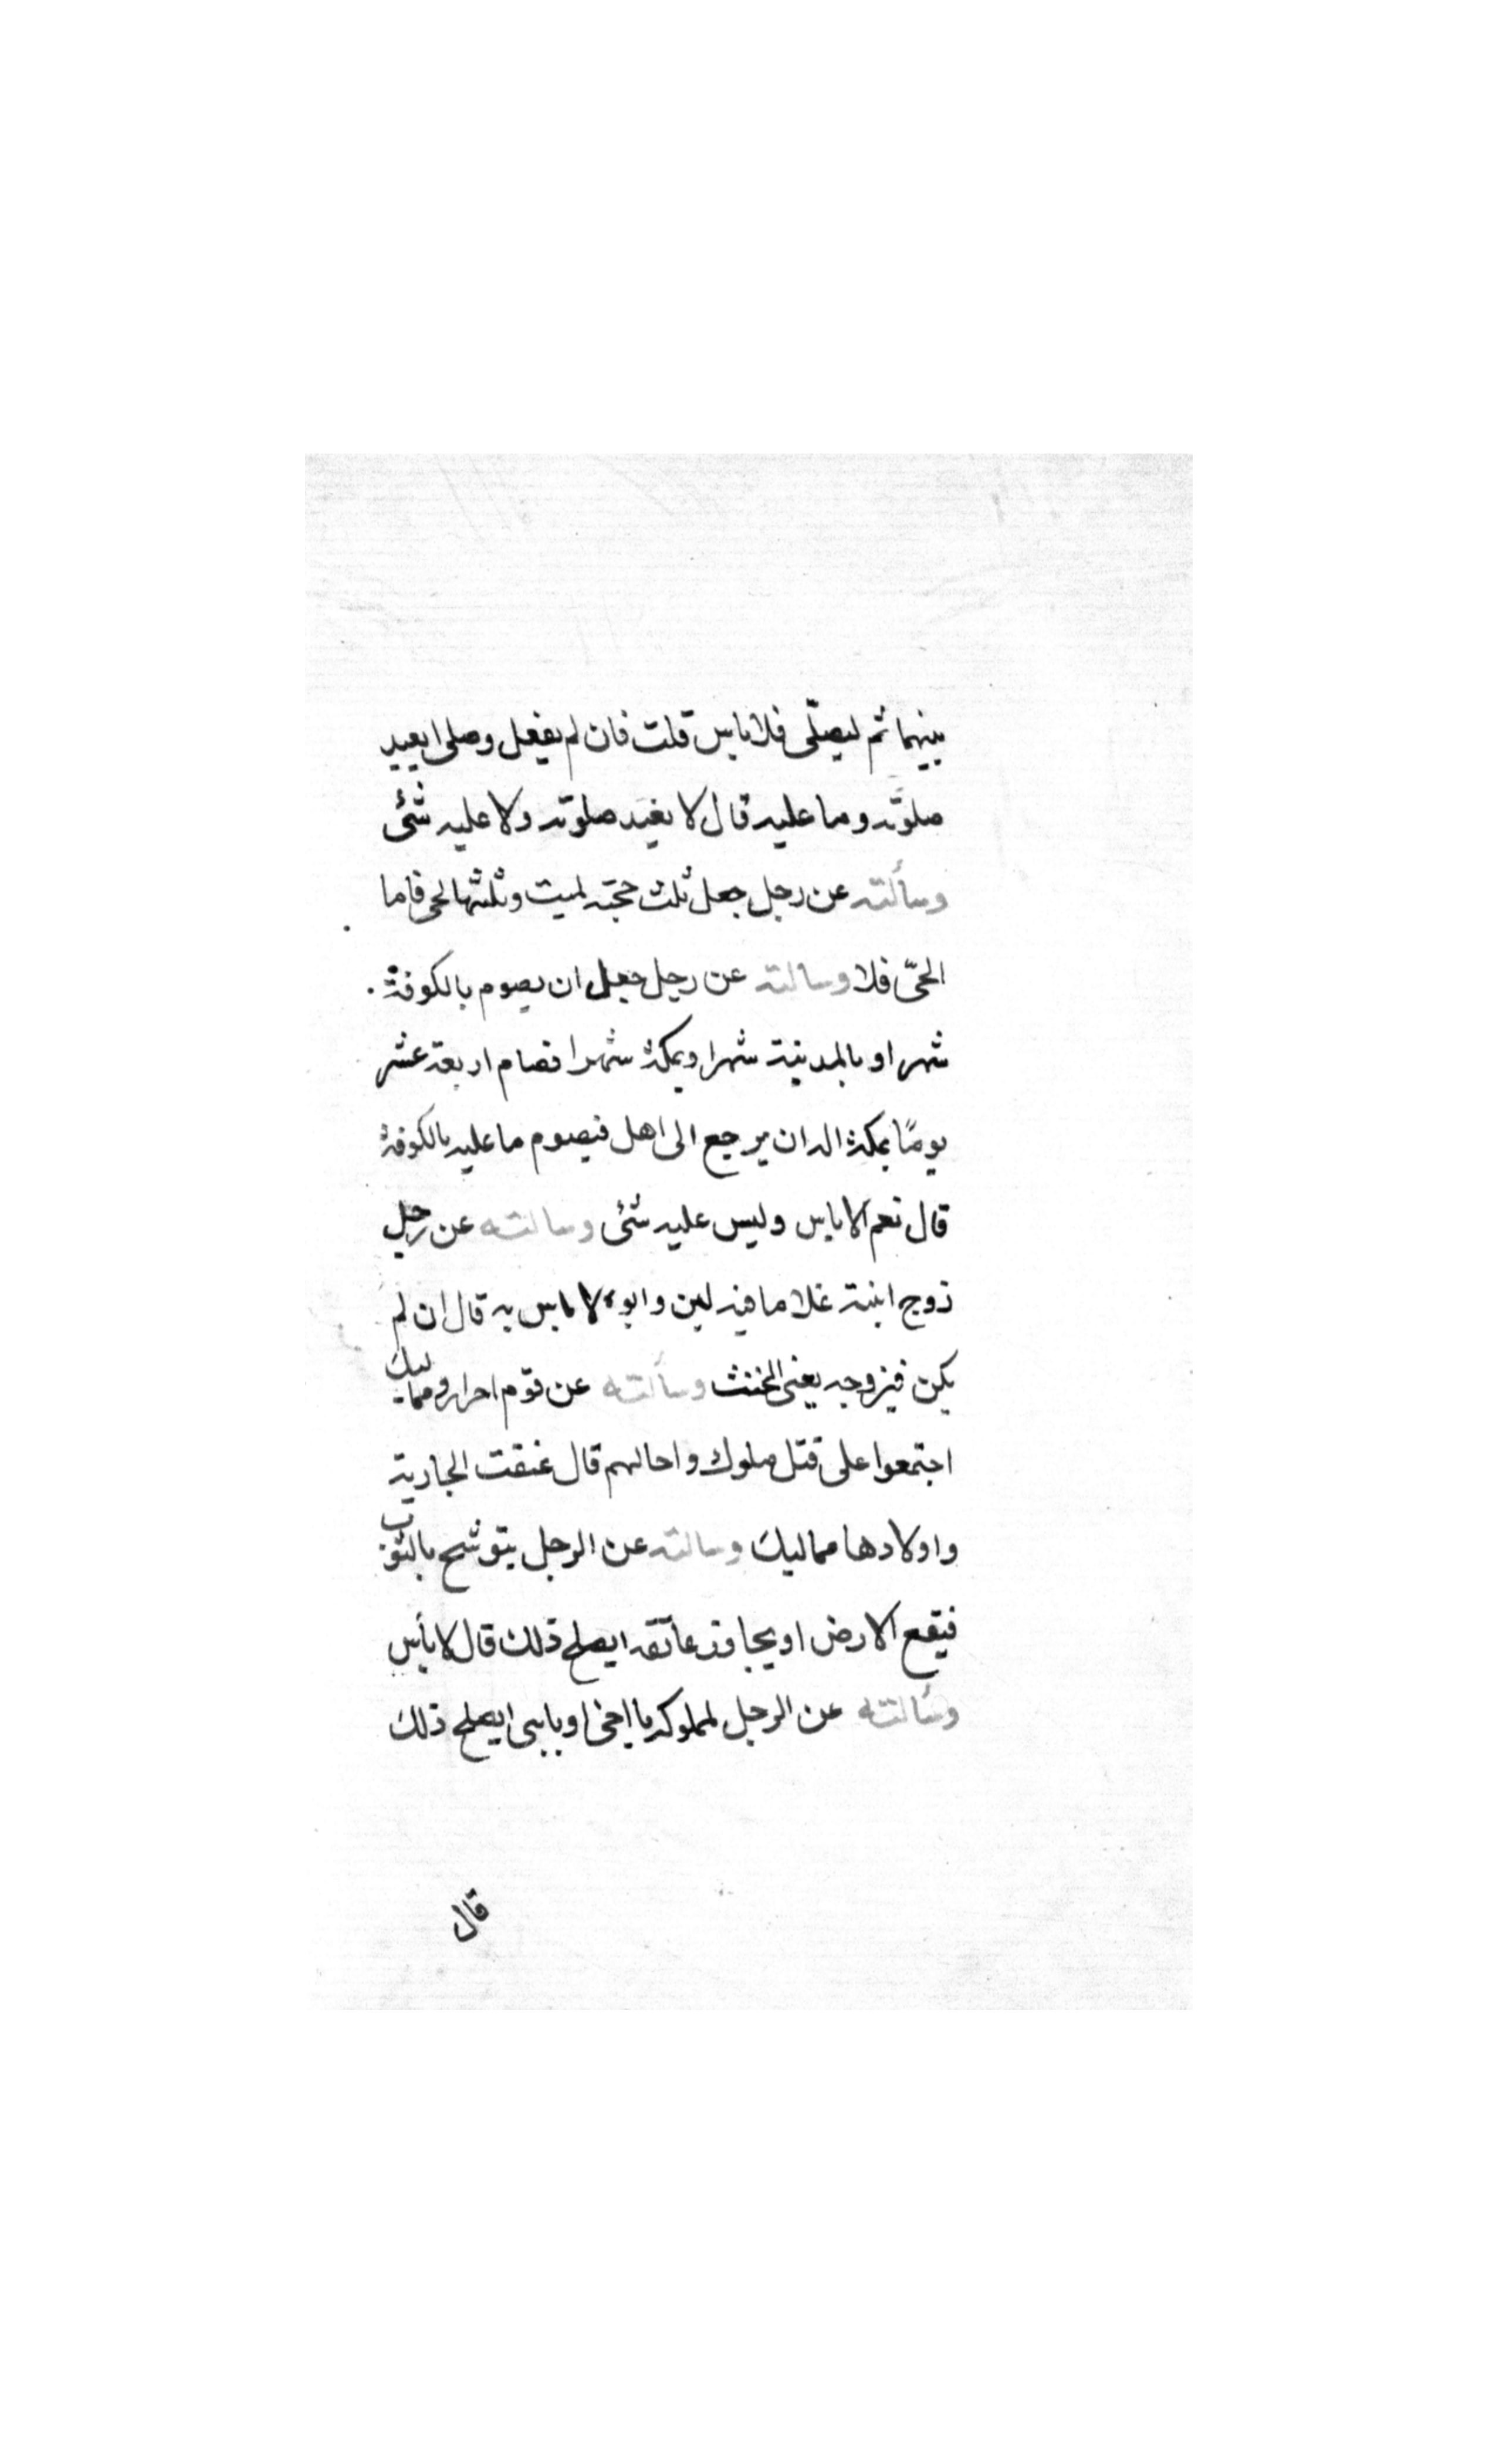 بينهما ثم ليصلّى فلا باس قلت فان لم يفعل وصلى ايعيد
صلوته وما عليه قال لا يعيد صلوته ولا عليه شئ
وسألته عن رجل جعل ثلث حجته لميت وثلثها لحى فاما
الحىّ فلا وسالته عن رجل جعل ان يصوم بالكوفة
شهرا وبالمدينة شهرا وبمكة شهرا فصام اربعة عشر
يومًا بمكة اله ان يرجع الى اهل فيصوم ما عليه بالكوفة
قال نعم لا باس وليس عليه شئ وسالته عن رجل
زوج ابنته غلاما فيه لين وابوه لا باس به قال ان لم
يكن فيزوجه يعنى المخنث وسألته عن قوم احرار ومماليك
اجتمعوا على قتل مملوك واحالهم قال عتقت الجارية
واولادها مماليك وسالته عن الرجل يتوشح بالثوب
فيقع الارض او يجاوز عاتقه ايصلح ذلك قال لا بأس
وسألته عن الرجل لمملوكه يا اخى او يابنى ايصلح ذلك
قال